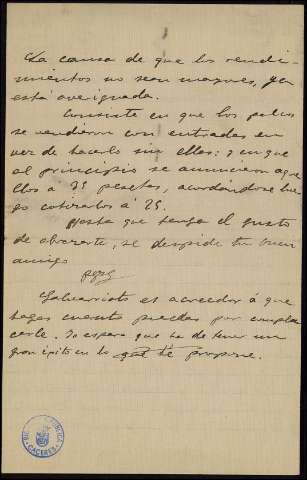 La causa de que los rendi-
mientos no sean mayores, ya
está averiguada.
Consiste en que los palcos
se vendieron con entradas en
vez de hacerlo sin ellas: y en que
al principio se anunciaron aque
llos a 35 pesetas, acordándose lue
go cotizarlos á 25.
Hasta que tenga el gusto
de abrazarte, se despide tu buen
amigo
es acreedor á que
hagas cuanto puedas por compla
certe. Yo espero que ha de tener un
gran éxito en lo que te propone.
PUBLICA
CACERES